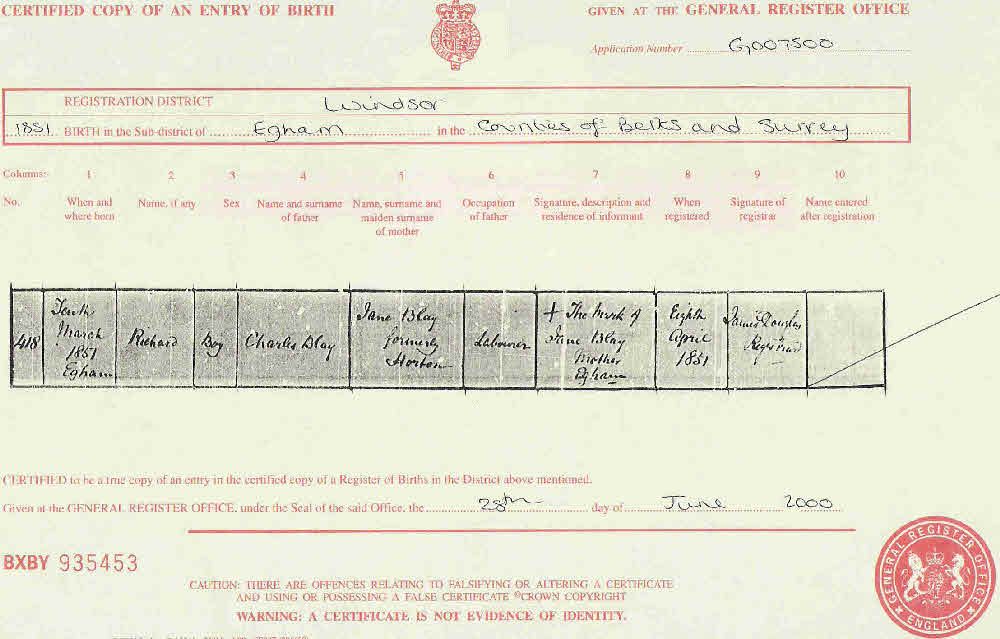 CERTIFIED COPY OF AN ENTRY OF BIRTH
GIVEN AT THE GENERAL REGISTER OFFICE
Application Number G007500
REGISTRATION DISTRICT Windsor
1851 BIRTH in the Sub-district of Egham in the Counties of Berks and Surrey
Columns: 1 2 3 4 5 6 7 8 9 10
No. When and where born Name, if any Sex Name and surname of father Name, surname and maiden surname of mother Occupation of father Signature, description and residence of informant When registered Signature of registrar Name entered after registration
418 Tenth March 1851 Egham Richard Boy Charles Blay Jane Blay formerly Horton Labourer + The Mark of Jane Blay Mother Egham Eighth April 1851 James Douglas Registrar
CERTIFIED to be a true copy of an entry in the certified copy of a Register of Births in the District above mentioned.
Given at the GENERAL REGISTER OFFICE, under the Seal of the said Office, the 28th day of June 2000
BXBY 935453
CAUTION: THERE ARE OFFENCES RELATING TO FALSIFYING OR ALTERING A CERTIFICATE
AND USING OR POSSESSING A FALSE CERTIFICATE ©CROWN COPYRIGHT
WARNING: A CERTIFICATE IS NOT EVIDENCE OF IDENTITY.
GENERAL REGISTER OFFICE
ENGLAND